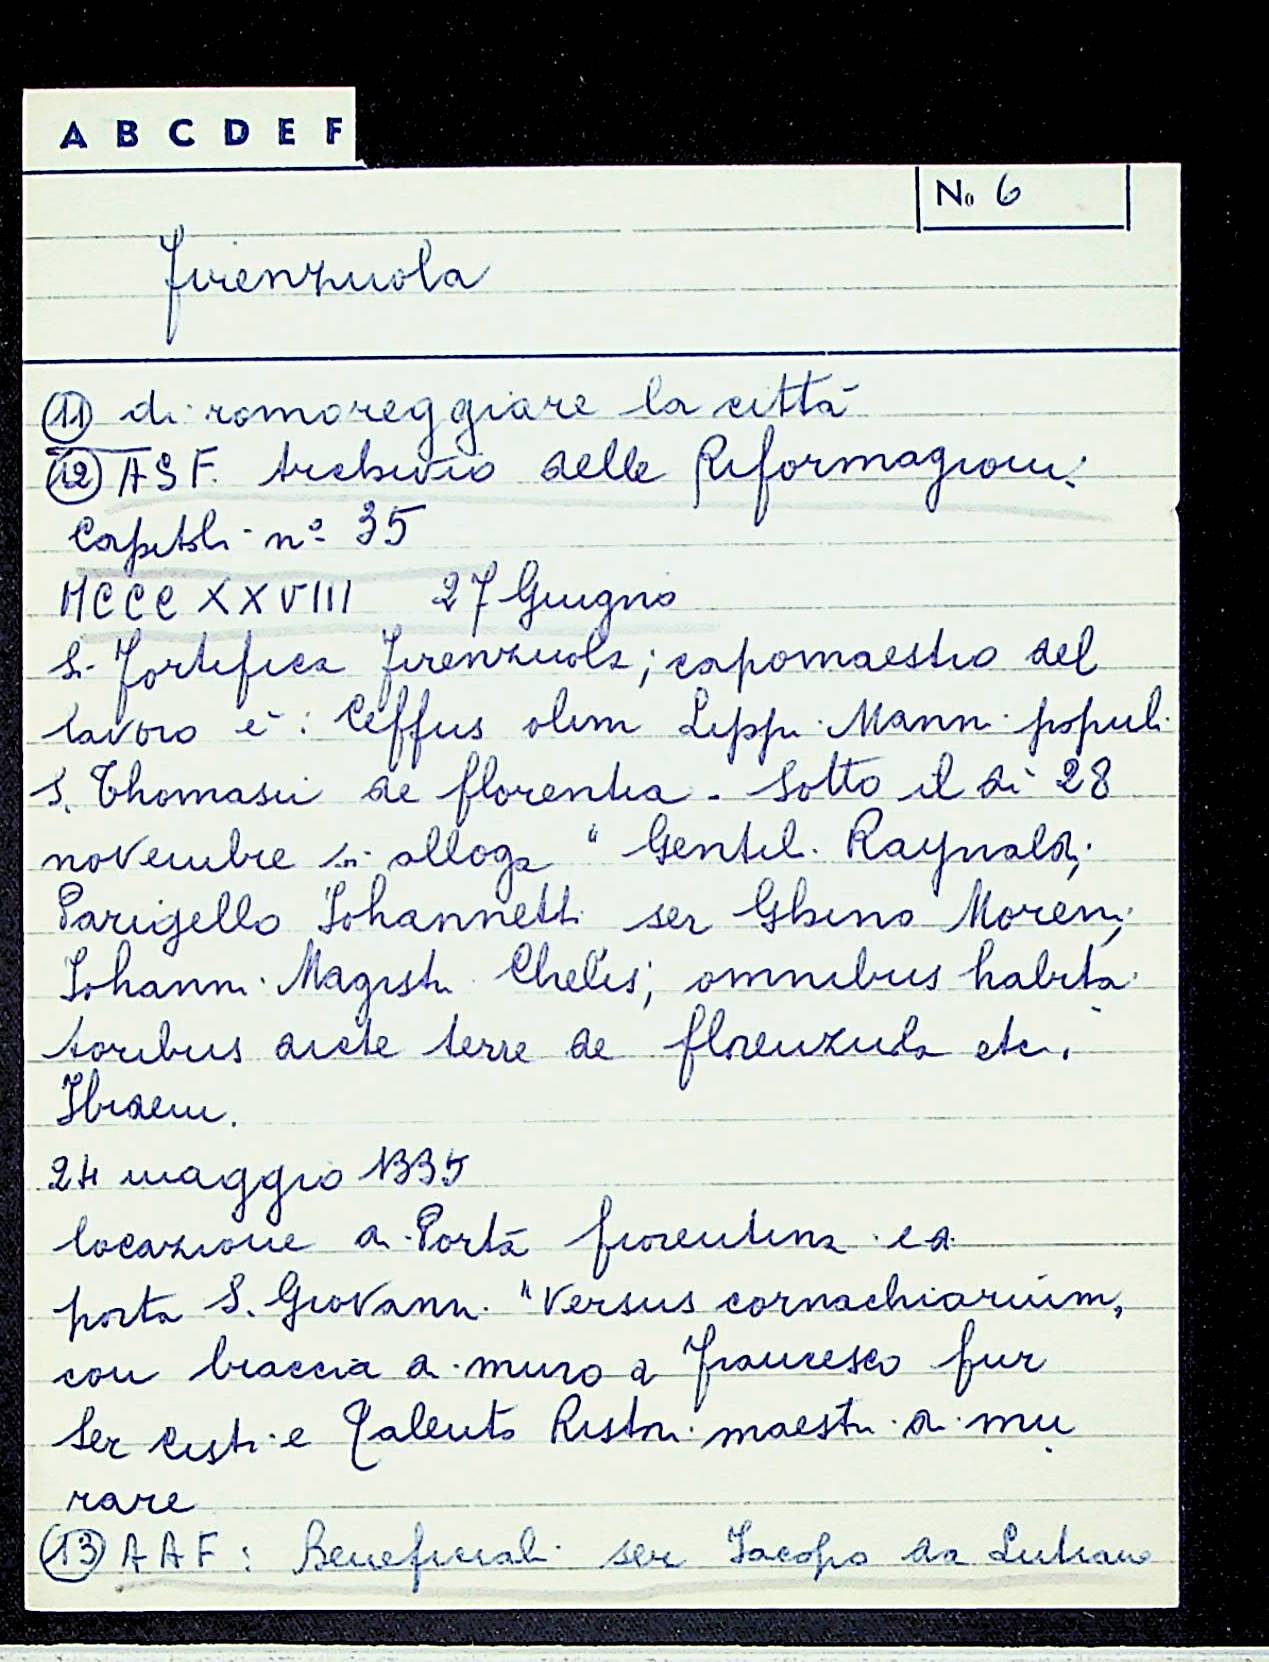 A B C D E F
No 6
Firenzuola
(11) di romoreggiare la città
(12) ASF. Archivio delle Riformagioni.
Capitoli n° 35
MCCCXXVIII 27 Giugno
Si fortifica Firenzuola; capomaestro del
lavoro è: Ceffus olim Lippi Manni populi
S. Thomasii de florentia - Sotto il dì 28
novembre si alloga " Gentili Raynaldi;
Parigello Iohannetti ser Ghino Moreni;
Iohanni Magistri Chelis; omnibus habita
toribus dicte terre de florenzuola etc.
Ibidem.
24 maggio 1335
locazione di Porta fiorentina e di
porta S. Giovanni "versus cornachiarium,
con braccia di muro a Francesco fur
Ser Cisti e Talento Ristori maestri di mu
rare
(13) AAF: Beneficiali ser Jacopo da Lutiano